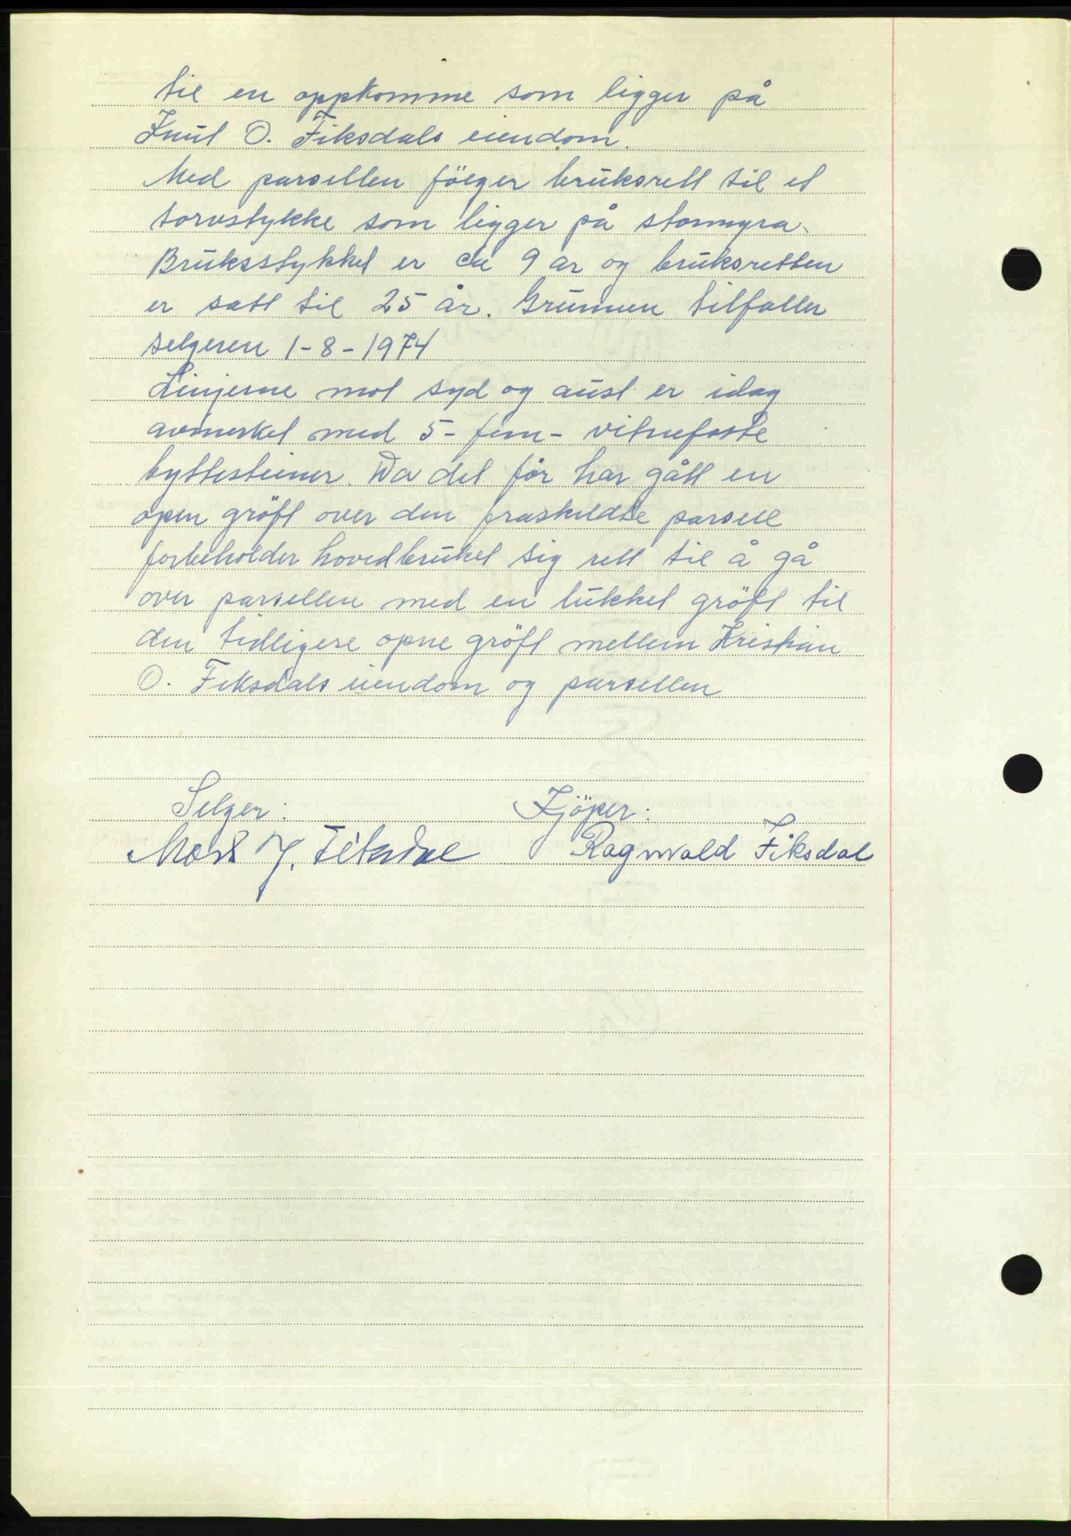 til en oppkomme som ligger på
Knut O. Fiksdals eiendom.
Med parsellen fölger bruksrett til et
torvstykke som ligger på stormyra.
Bruksstykket er ca 9 ar og bruksretten
er satt til 25 år. Grunnen tilfaller
selgeren 1-8-1974
Linjerne mot syd og aust er idag
avmerket med 5- fem- vitnefaste
byttesteiner. Da det för har gått en
open gröft over den fraskildte parsell
forbeholder hovedbruket sig rett til å gå
over parsellen med en lukket gröft til
den tidligere opne gröft mellem Kristian
O. Fiksdals eiendom og parsellen
Selger: Kjöper:
J. Fiksdal Ragnvald Fiksdal